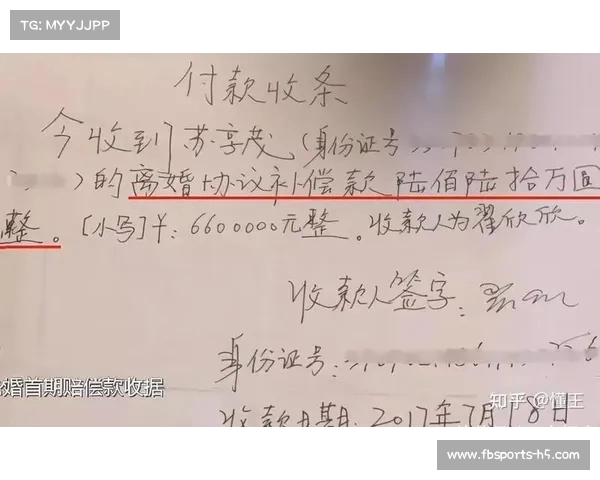 TG: MYYJJPP
付款收条
今收到苏享茂（身份证号
）的离婚协议补偿款陆佰陆拾万圆
整。[小写]￥：6600000元整。收款人为翟欣欣。
收款人签字：
身份证号：
婚首期赔偿款收据
收款日期：2017年7月18日
知乎 @懂王
www.fbsports-h5.com